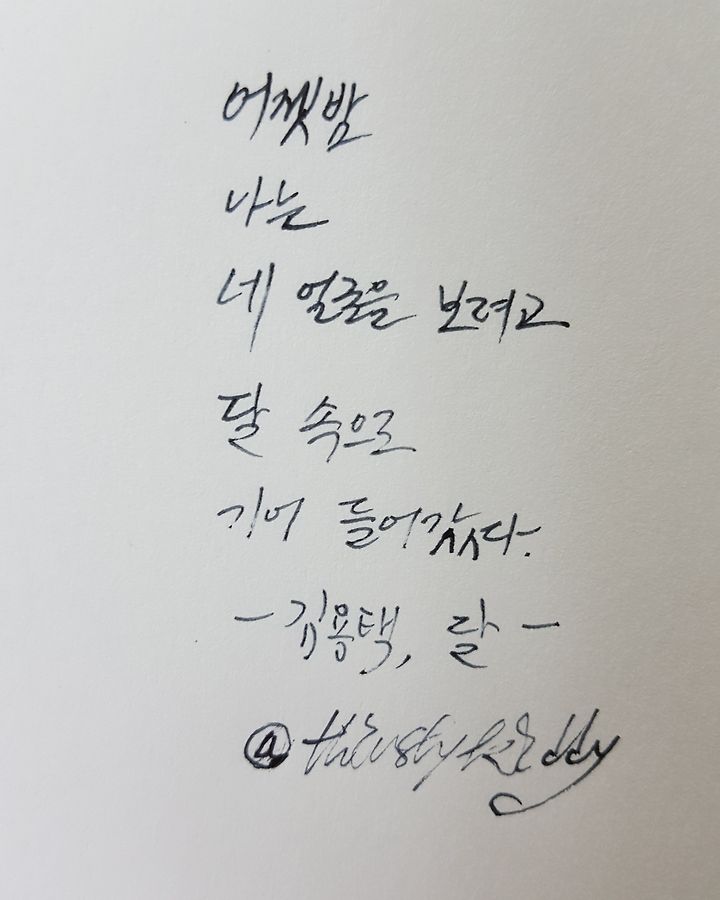 어젯밤
나는
네 얼굴을 보려고
달 속으로
기어 들어갔다.
- 김용택, 달 -